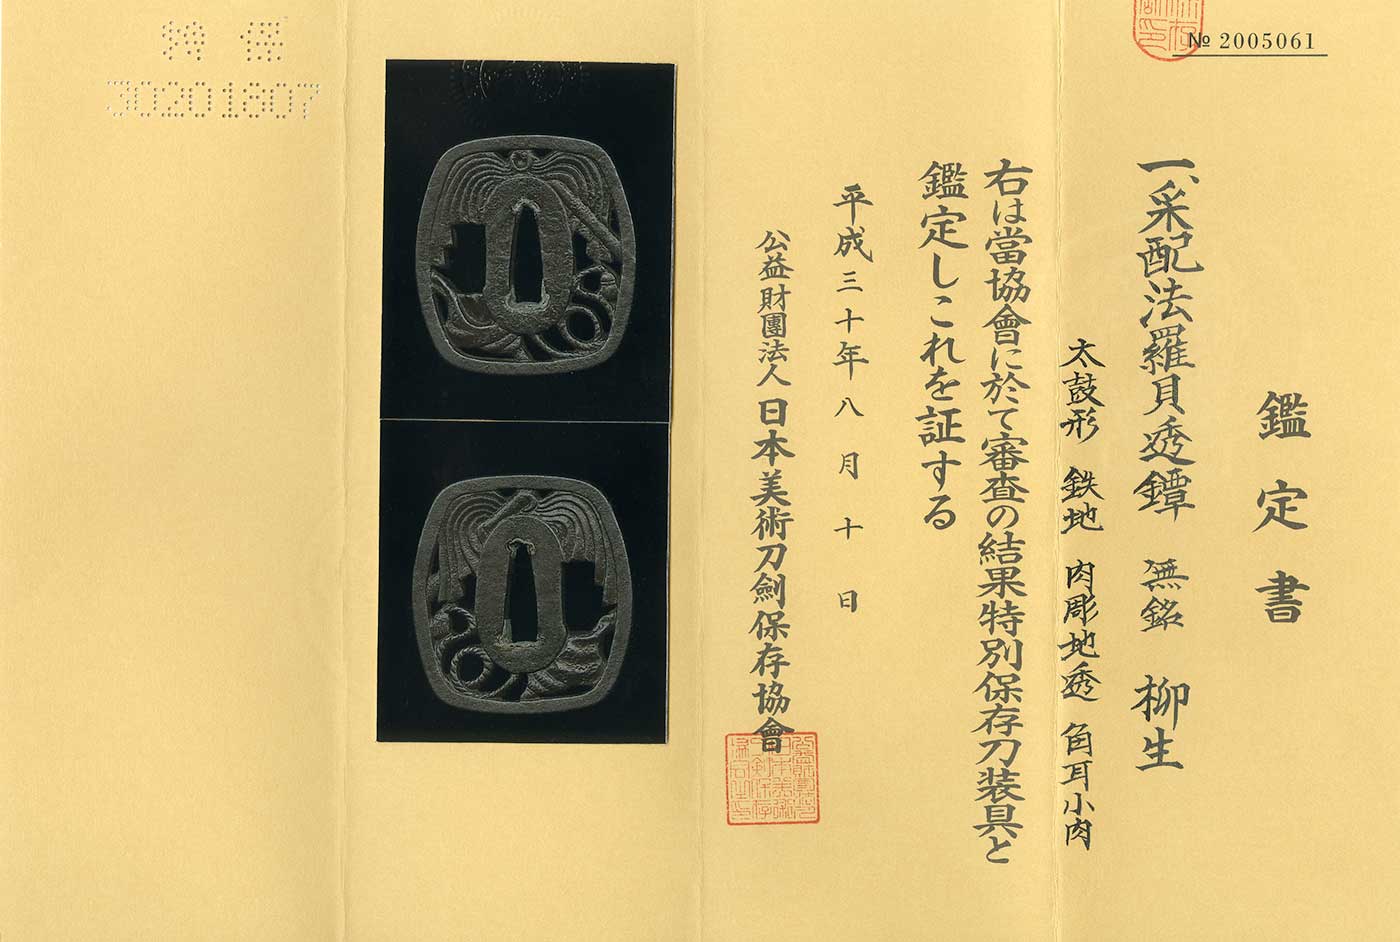 № 2005061
鑑定書
一、采配法羅貝透鐔 無銘 柳生
太鼓形 鉄地 肉彫地透 角耳小肉
右は當協會に於て審査の結果特別保存刀装具と
鑑定しこれを証する
平成三十年八月十日
公益財團法人 日本美術刀劍保存協會
特 保
30201807